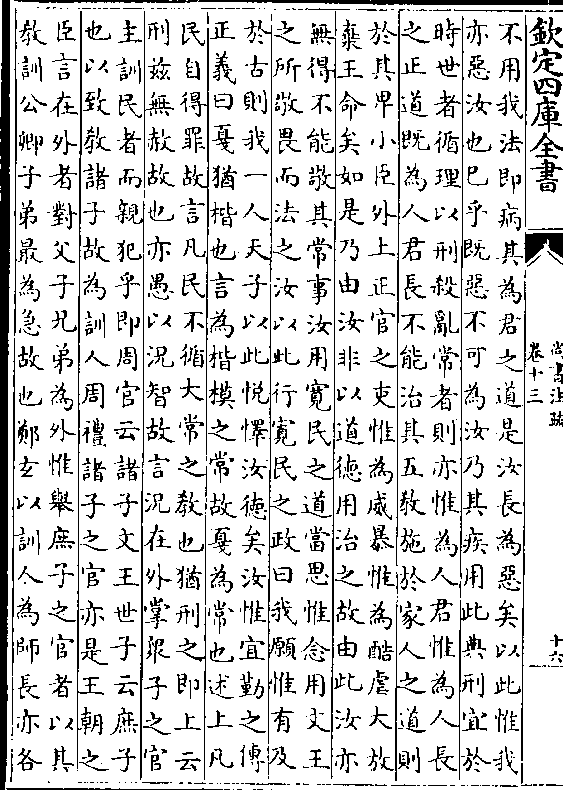 欽定四庫全書
尚書注疏
卷十三
十六
不用我法即病其為君之道是汝長為惡矣以此惟我
亦惡汝也已乎既惡不可為汝乃其疾用此典刑宜於
時世者循理以刑殺亂常者則亦惟為人君惟為人長
之正道既為人君長不能治其五教施於家人之道則
於其卑小臣外上正官之吏惟為威暴惟為酷虐大放
棄王命矣如是乃由汝非以道德用治之故由此汝亦
無得不能敬其常事汝用寛民之道當思惟念用文王
之所敬畏而法之汝以此行寛民之政曰我願惟有及
於古則我一人天子以此悅懌汝德矣汝惟宜勤之傳
正義曰戛猶楷也言為楷模之常故戛為常也述上凡
民自得罪故言凡民不循大常之教也猶刑之即上云
刑兹無赦故也亦愚以況智故言況在外掌衆子之官
主訓民者而親犯乎即周官云諸子文王世子云庶子
也以致教諸子故為訓人周禮諸子之官亦是王朝之
臣言在外者對父子兄弟為外惟舉庶子之官者以其
教訓公卿子弟最為急故也鄭玄以訓人為師長亦各